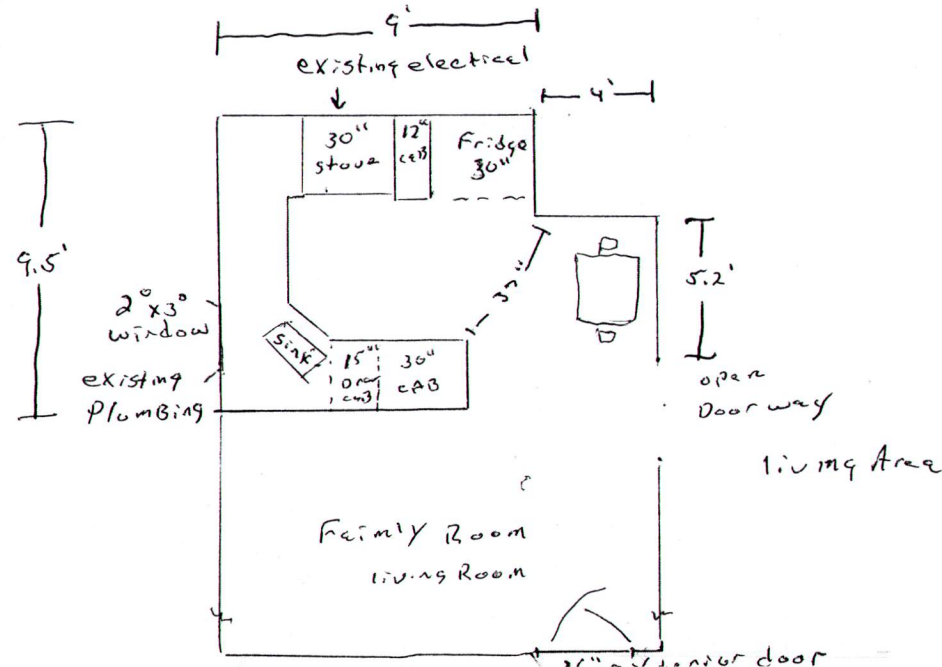 9'
existing electical
4'
30"
stove
12"
caB
Fridge
30"
9.5'
5.2'
2° x 3°
window
Sink
15"
30"
cAB
existing
Plumbing
open
Door way
living Area
Faimly Room
living Room
door